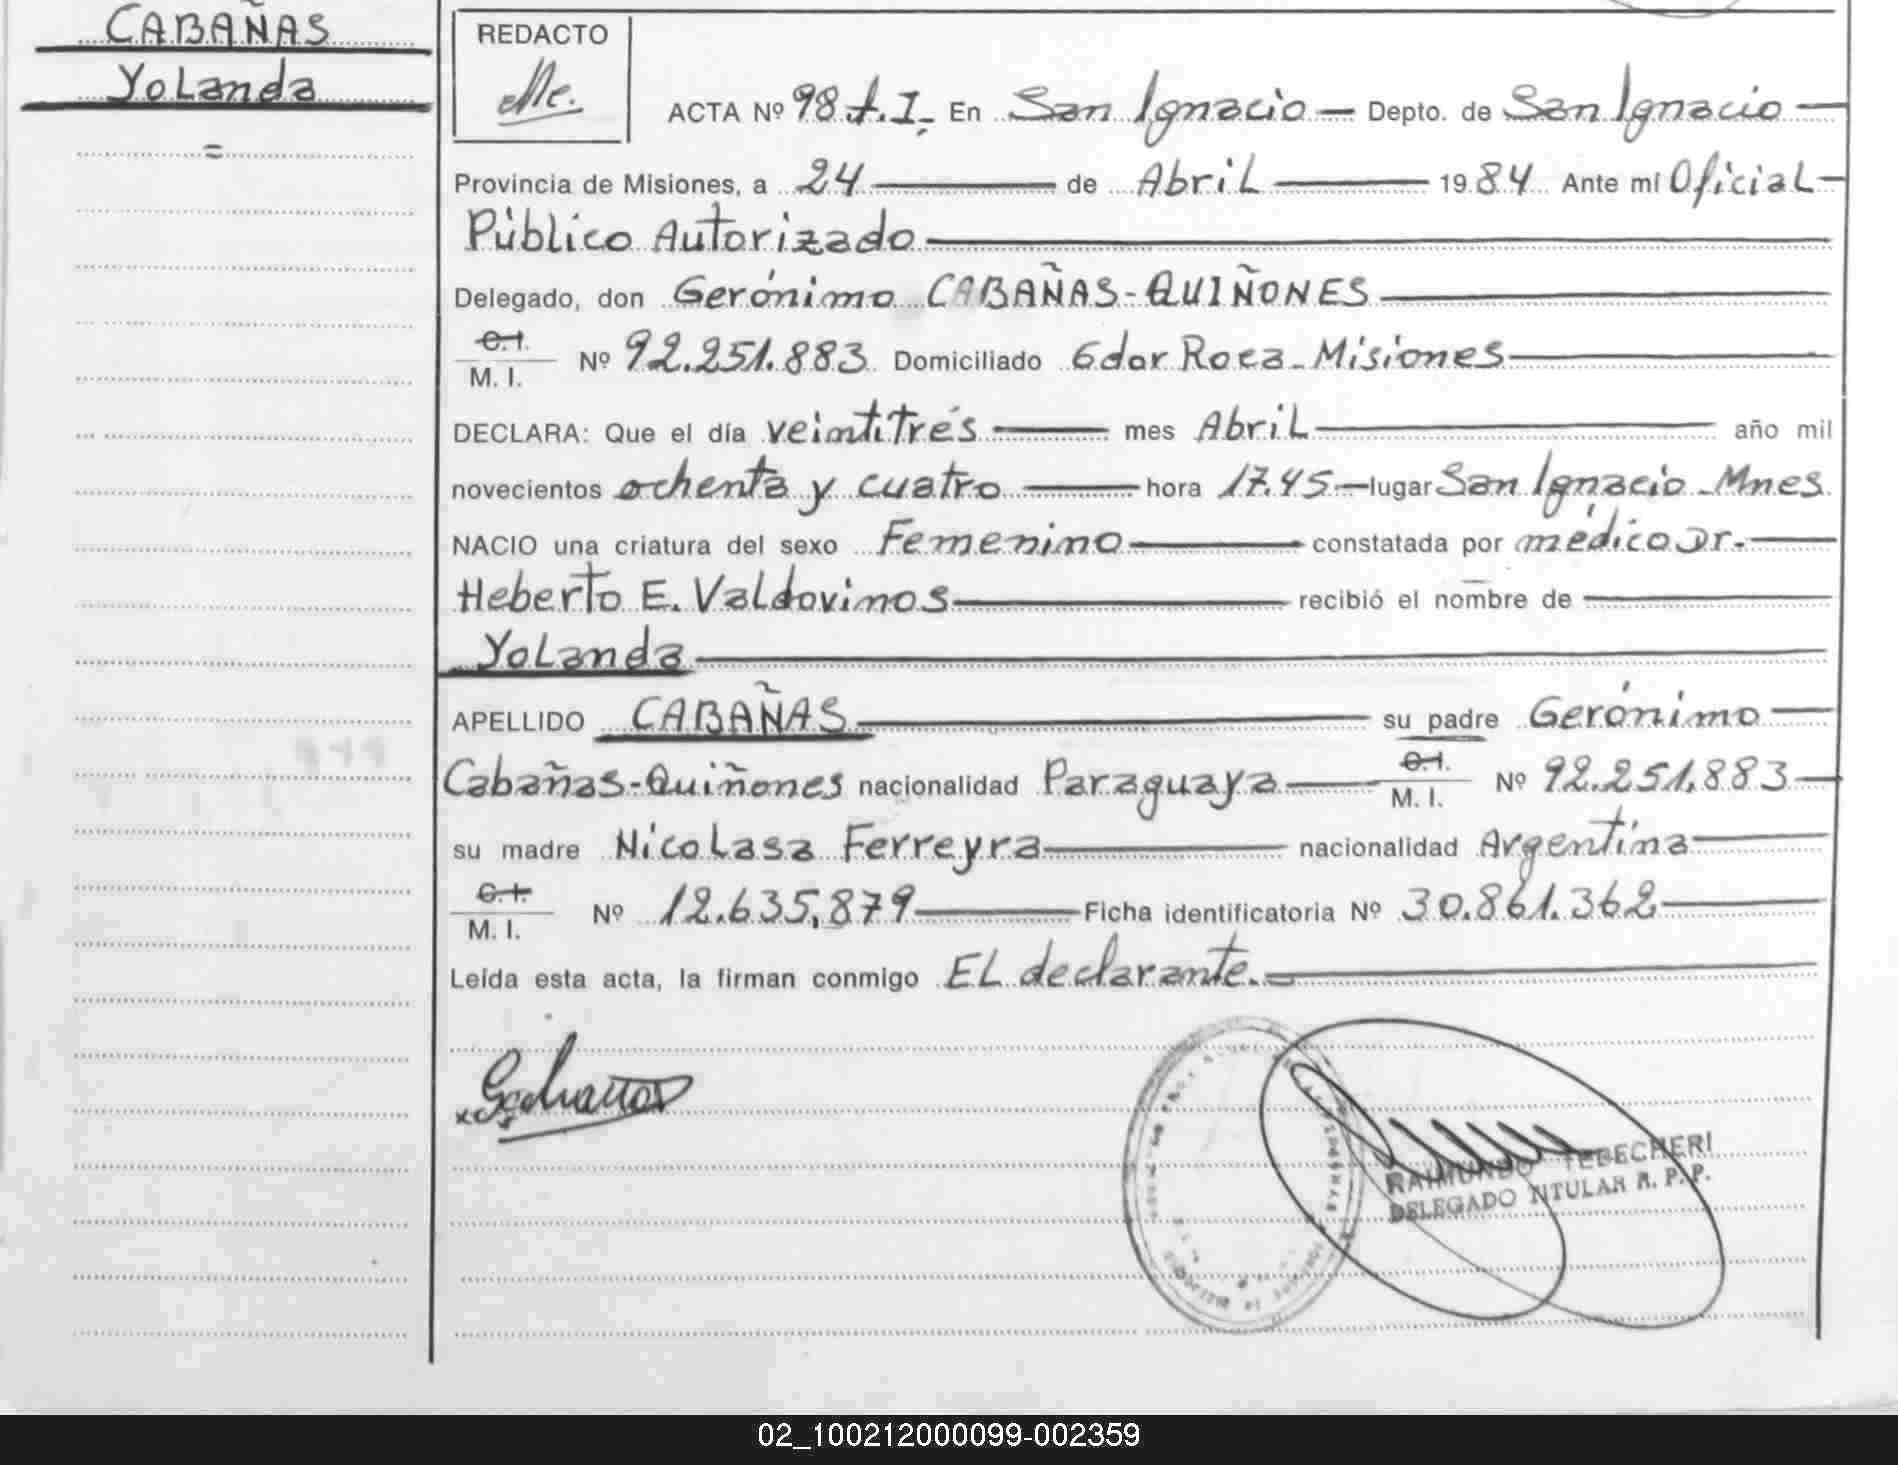 CABAÑAS
Yolanda
=
REDACTO
ACTA Nº 98 t.I. En San Ignacio — Depto. de San Ignacio —
Provincia de Misiones, a 24 — de Abril — 1984 Ante mí Oficial —
Público Autorizado —
Delegado, don Gerónimo CABAÑAS-QUIÑONES —
C.I.
M. I. Nº 92.251.883 Domiciliado Gdor Roca - Misiones —
DECLARA: Que el día veintitrés — mes Abril — año mil
novecientos ochenta y cuatro — hora 17.45 — lugar San Ignacio - Mnes
NACIO una criatura del sexo Femenino — constatada por médico Dr. —
Heberto E. Valdovinos — recibió el nombre de —
Yolanda —
APELLIDO CABAÑAS — su padre Gerónimo —
Cabañas-Quiñones nacionalidad Paraguaya — C.I.
M. I. Nº 92.251.883 —
su madre Nicolasa Ferreyra — nacionalidad Argentina —
C.I.
M. I. Nº 12.635.879 — Ficha identificatoria Nº 30.861.362 —
Leída esta acta, la firman conmigo EL declarante. —
RAIMUNDO TEBECHERI
DELEGADO TITULAR R. P. P.
02_100212000099-002359